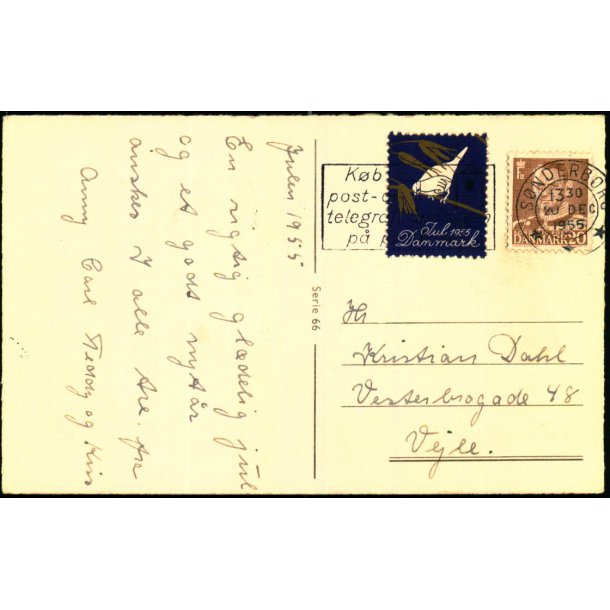 Julen 1955
En rigtig glædelig jul
og et godt nytår
ønskes I alle tre. fra
Anny Carl Teddy og Kis
Serie 66
Køb
post-o
telegra
på p
Jul 1955
Danmark
SØNDERBORG
1330
20 DEC
1955
DANMARK 20
Hr
Kristian Dahl
Vesterbrogade 48
Vejle.